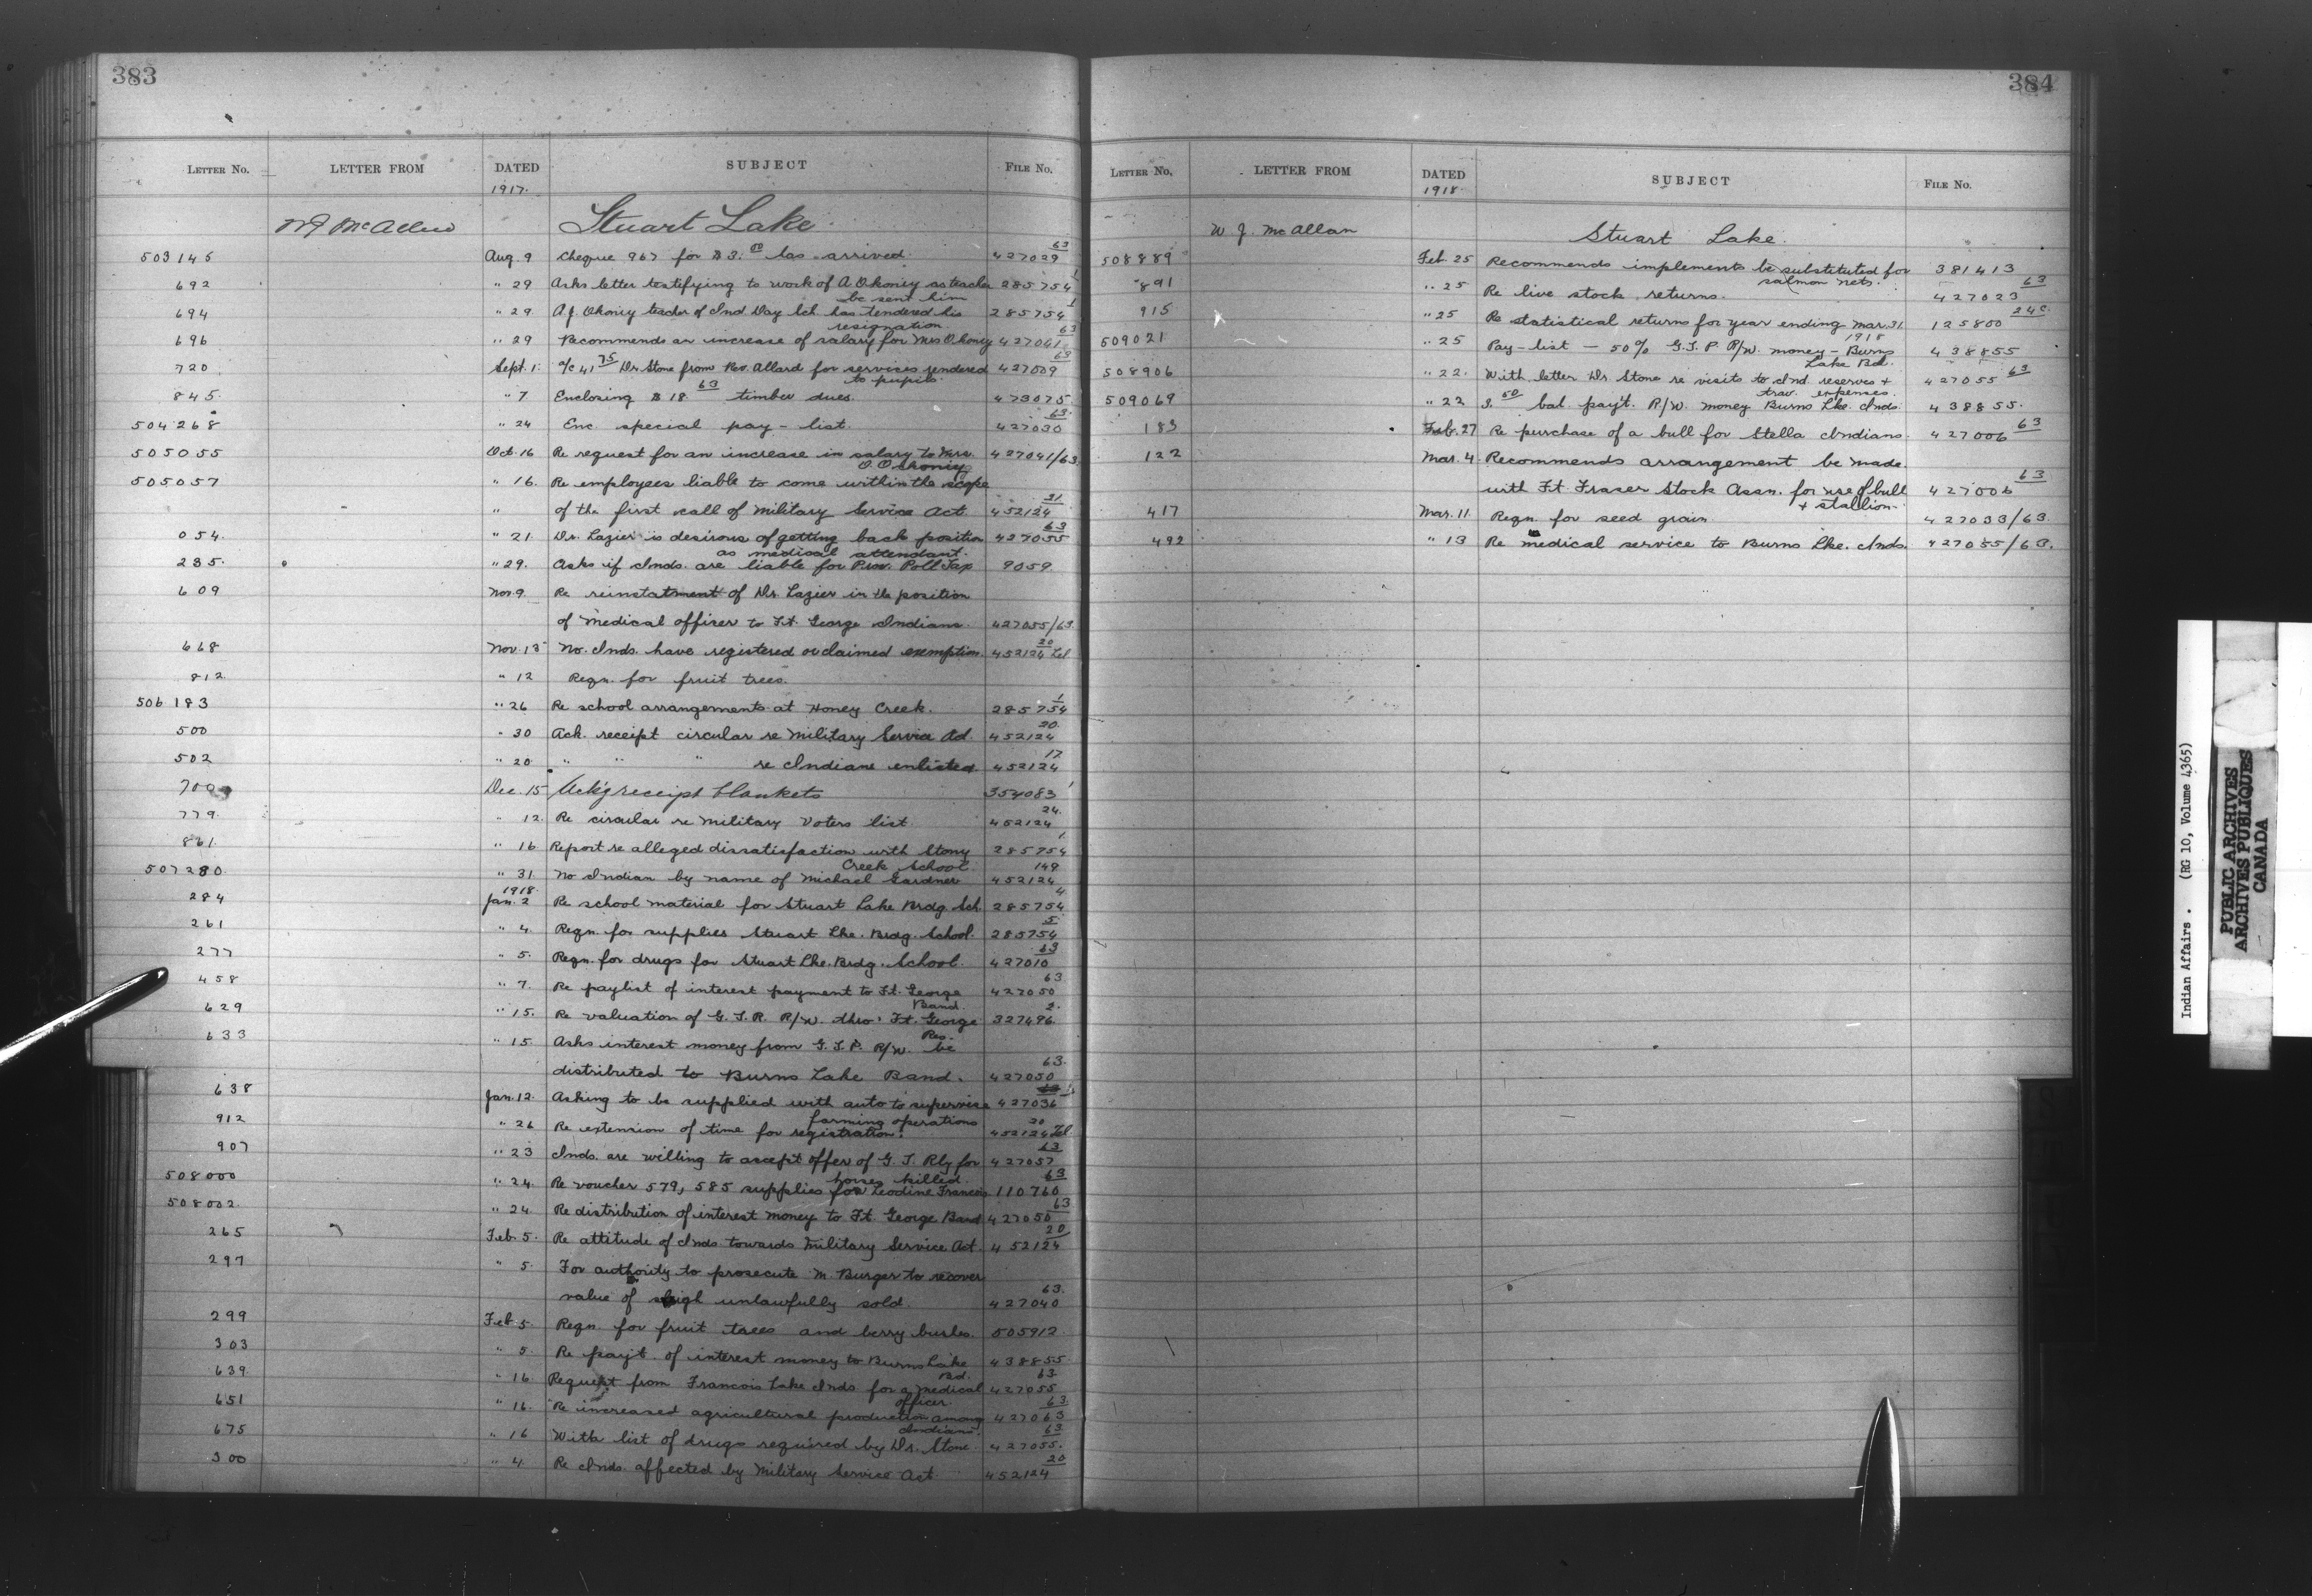 383
LETTER NO. LETTER FROM DATED SUBJECT FILE No.
1917.
W J McAllan Stuart Lake
503146 Aug. 9 Cheque 967 for $3. has arrived. 427029 63
692 " 29 Asks letter testifying to work of A. Ohoniy as teacher 285754 1
be sent him
694 " 29. A J. Ohoniy teacher of Ind Day Sch. has tendered his 285754 1
resignation.
696 " 29 Recommends an increase of salary for Mrs Ohoniy 427041 63
720 Sept. 1. a/c 41 75 Dr. Stone from Rev. Allard for services rendered 427009 63
to pupils.
845. " 7 Enclosing $18. 63 timber dues. 473075
504268 " 24 Enc. special pay-list. 427030 63.
505055 Oct. 16 Re request for an increase in salary to Mrs. 427041/63
505057 " 16. Re employees liable to come within the scope
" of the first call of Military Service Act. 452124 21
054. " 21. Dr. Lazier is desirous of getting back position 427055 63
as medical attendant.
235. " 29. Asks if Inds. are liable for Prov. Poll Tax 9059
609 Nov. 9 Re reinstatment of Dr. Lazier in the position
of Medical officer to Ft. George Indians. 427055/63.
668 Nov. 13 No. Inds. have registered or claimed exemption. 452124 20 Tel.
812. " 12 Reqn. for fruit trees.
506183 " 26 Re school arrangements at Honey Creek. 285754 1
500 " 30 Ack. receipt circular re Military Service Act. 452124 20.
502 " 20 " " " re Indians enlisted 452124 17
700 Dec. 15 Ack'g receipt blankets 354083 1
779. " 12. Re circular re Military Voters list. 452124 24.
861. " 16 Report re alleged dissatisfaction with Stony 285754 1
Creek School.
507280. " 31. No Indian by name of Michael Gardner 452124 149
1918.
284 Jan. 2 Re school material for Stuart Lake Brdg Sch. 285754 4
261 " 4. Reqn. for supplies Stuart Lke. Brdg. School. 285754 5
277 " 5. Reqn. for drugs for Stuart Lke. Brdg. School. 427010 63
458 " 7. Re paylist of interest payment to Ft. George 427050 63
Band.
629 " 15. Re valuation of G. T. R. R/W. thro' Ft. George 327496. 2.
Res.
633 " 15. Asks interest money from G. T. P. R/W. be
distributed to Burns Lake Band. 427050 63.
638 Jan. 12. Asking to be supplied with auto to supervise 427036
farming operations
912 " 26 Re extension of time for registration. 452124 20 Tel.
907 " 23 Inds. are willing to accept offer of G. T. Rly for 427057 63
horses killed.
508000 " 24. Re voucher 579, 585 supplies for Leodine Francois 110760 63
508002. " 24. Re distribution of interest money to Ft. George Band 427050 63
265 Feb. 5. Re attitude of Inds. towards Military Service Act. 452124 20
297 " 5 For authority to prosecute M. Burger to recover
value of sleigh unlawfully sold. 427040 63.
299 Feb. 5. Reqn. for fruit trees and berry bushes. 505912
303 " 5. Re payt. of interest money to Burns Lake 438855
Bd.
639 " 16 Request from Francois Lake Inds for a medical 427055 63
officer.
651 " 16. Re increased agricultural production among 427063 63
Indians.
675 " 16 With list of drugs required by Dr. Stone. 427055. 63
300 " 4. Re Inds. affected by Military Service Act. 452124 20
384
LETTER NO. LETTER FROM DATED SUBJECT FILE NO.
1918.
W J. McAllan Stuart Lake.
508889 Feb. 25 Recommends implements be substituted for 381413
salmon nets.
891 " 25 Re live stock returns. 427023 63
915 " 25 Re statistical returns for year ending Mar. 31. 125800 24C
1918
509021 " 25 Pay-list — 50% G.T.P. R/W. money - Burns 438855
Lake Bd.
508906 " 22. With letter Dr. Stone re visits to Ind. reserves + 427055 63
trav. expenses.
509069 " 22 3. 50 bal pay't. R/W. money Burns Lke. Inds. 438855.
183 Feb. 27 Re purchase of a bull for Stella Indians. 427006 63
122 Mar. 4. Recommends arrangement be made.
with Ft. Fraser Stock Assn. for use of bull 427006 63
+ stallion.
417 Mar. 11. Reqn. for seed grain. 427033/63.
492 " 13 Re medical service to Burns Lke. Inds. 427055/63.
Indian Affairs. (RG 10, Volume 4365)
PUBLIC ARCHIVES
ARCHIVES PUBLIQUES
CANADA